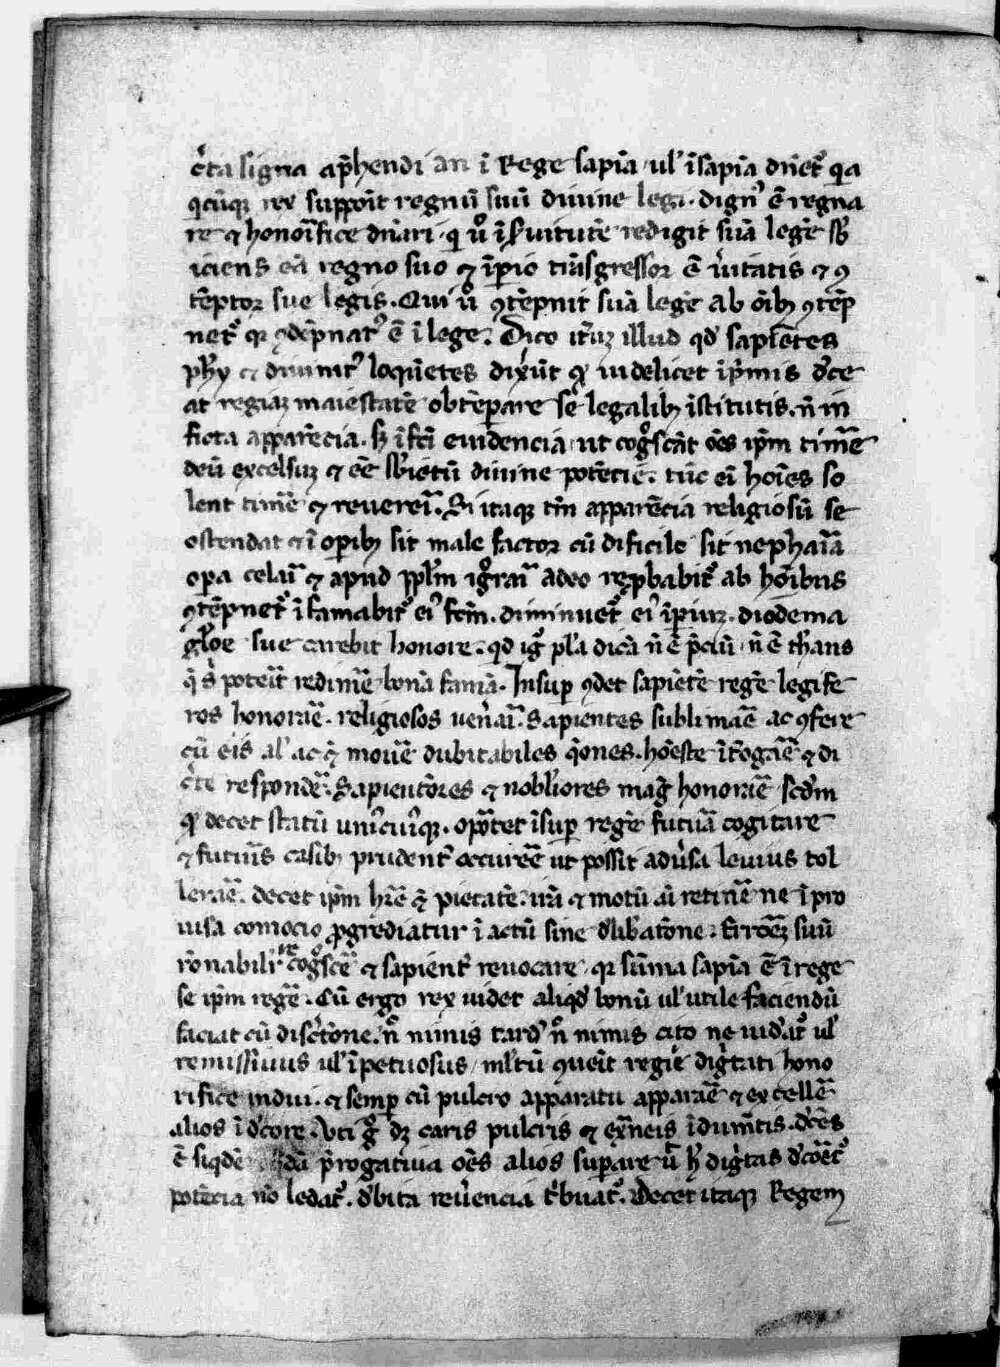 c̾ta signa ap̅hendi an ī Rege sapīa ul̕ īsapīa dn̄et᷑ q̇a
qͥcūq; rex suppoīt regnū suū diuine legi. dign᷒ ē regna
re ⁊ honoīfice dn̄ari. qͥ u̾o ī s̾uitutē redigit suā legē sb̾
iciens eā regno suo ⁊ īp̱io tn̄sgressor ē u̾itatis ⁊ ꝯ
tēptor sue legis. Qui u̾o ꝯtēpnit suā legē ab oīb; ꝯtēp
net᷑ qꝛ ꝯdēpnat᷒ ē ī lege. Dico it̾uꝫ illud qd̾ sapīetes
ph̾y ⁊ diuinit᷑ loquētes dix̾ūt qͩ uidelicet īp̾mis d̾ce
at regiaꝫ maiestatē obtēpare se legalib; īstitutis. n̄ in
ficta apparēcia. sꝫ ī fc̄i euidencia ut cogͦscāt oēs ip̄m tim̄e
deū excelsuꝫ ⁊ eē sb̾iectū diuine potēcie. tūc ei̅ hoīes so
lent tim̄e ⁊ reuereī. Si itaq; tm̄ apparēcia religiosū se
ostendat ⁊ ī op̱ib; sit male factor cū dificile sit nephāia
op̱a celaī ⁊ apud pp̄lm igͦraī adeo rep̱babit᷑ ab hoībus
ꝯtēpnet᷑ īfamabit᷑ ei᷒ fc̄m. diminuet᷑ ei᷒ īpiuꝫ. diodema
gl̾oe sue carebit honore. qd igͥ pl̾a dicā n̄ ē p̄ciū n̄ ē th̾ans
q̇ s̾ poteīt redim̄e bonā famā. Insup̱ ꝯdet sapiētē regē legife
ros honoraē. religiosos uen̾aī. Sapientes sublimaē ac ꝯfere
cū eis al̕ ac ꝙ mouē dubitabiles q̄ones. hōeste īt̾ogaē ⁊ di
c̾te respondē. Sapientōres ⁊ nobl̾iores magͥ honoraē scd̾m
qͩ decet statū uniꝰcuiꝰq;. opͦtet īsup̱ regē futuā cogitare
⁊ futuīs casib; prudent᷑ occurē ut possit adu̾sa leuius tol
leraē. decet ip̄m hr̄e ꝙ pietatē. irā ⁊ motū ai̅ retin̄e ne īpro
uisa comocio ꝓgrediatur ī actū sine d̾lib̾atōne. Erroēꝫ suū
rōnabilit᷑ recogͦscē ⁊ sapient᷑ reuocare qꝛ sūma sapīa ē ī rege
se ip̄m regē. Cū ergo rex uidet aliqd̾ bonū ul̕ utile faciendū
faciat cū disc̾tōne. nͦ nimis tard̾ nͦ nimis cito ne uid̾at᷑ ul̕
remissiuus ul̕ īpetuosus ml̾tū ꝯueīt regie dig̾tati hono
rifice indui. ⁊ semp̱ cū pulcro apparatu apparaē ⁊ excellē
alios ī d̾core. Vti gͥ dꝫ caris pulcris ⁊ ex̄neis īdumītis. d̾cēs
ē siqdē p̾rogatiua oēs alios sup̱are u̅ h̾ dig̾tas d̾coēt᷑
potēcia nō ledat᷑. d̾bita reu̾encia t̾buat᷑. Decet itaq; Regem